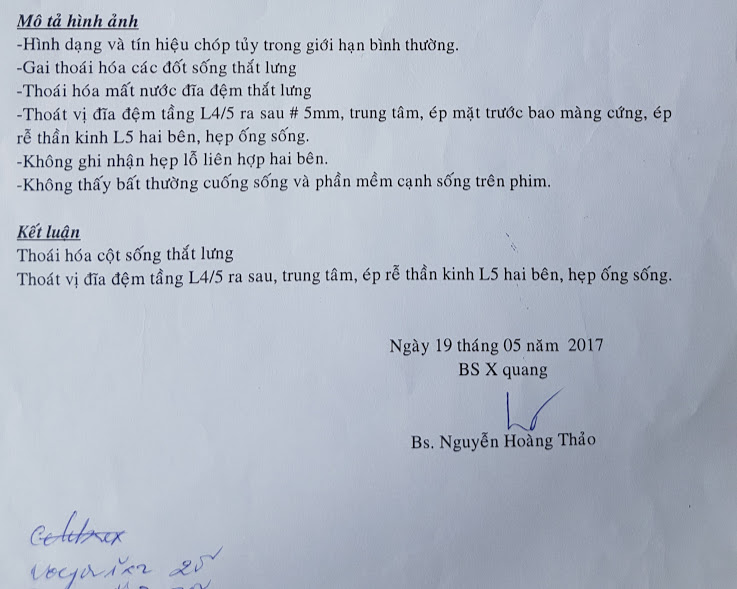 Mô tả hình ảnh
-Hình dạng và tín hiệu chóp tủy trong giới hạn bình thường.
-Gai thoái hóa các đốt sống thắt lưng
-Thoái hóa mất nước đĩa đệm thắt lưng
-Thoát vị đĩa đệm tầng L4/5 ra sau # 5mm, trung tâm, ép mặt trước bao màng cứng, ép
rễ thần kinh L5 hai bên, hẹp ống sống.
-Không ghi nhận hẹp lỗ liên hợp hai bên.
-Không thấy bất thường cuống sống và phần mềm cạnh sống trên phim.
Kết luận
Thoái hóa cột sống thắt lưng
Thoát vị đĩa đệm tầng L4/5 ra sau, trung tâm, ép rễ thần kinh L5 hai bên, hẹp ống sống.
Ngày 19 tháng 05 năm 2017
BS X quang
Bs. Nguyễn Hoàng Thảo